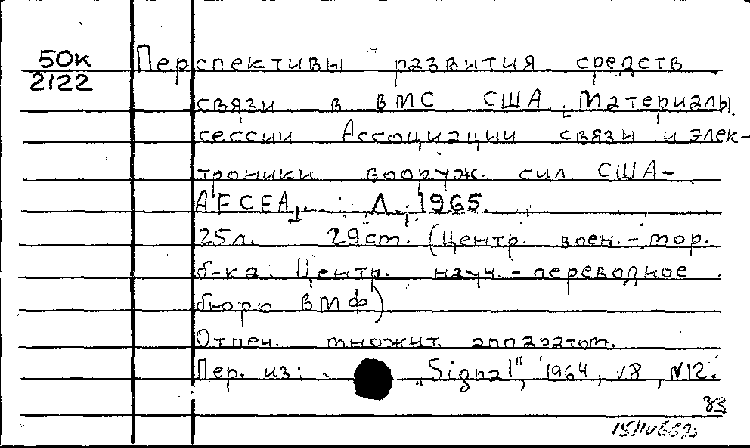 50к
2122
Перспективы развития средств
связи в ВМС США. Материалы
сессии Ассоциации связи и элек-
троники вооруж. сил США-
AFCEA. Л., 1965.
25л. 29см. (Центр. воен.-мор.
б-ка. Центр. науч.-переводное
бюро ВМФ)
Отпеч. множит. аппаратом.
Пер. из: „Signal", 1964, v8, N12.